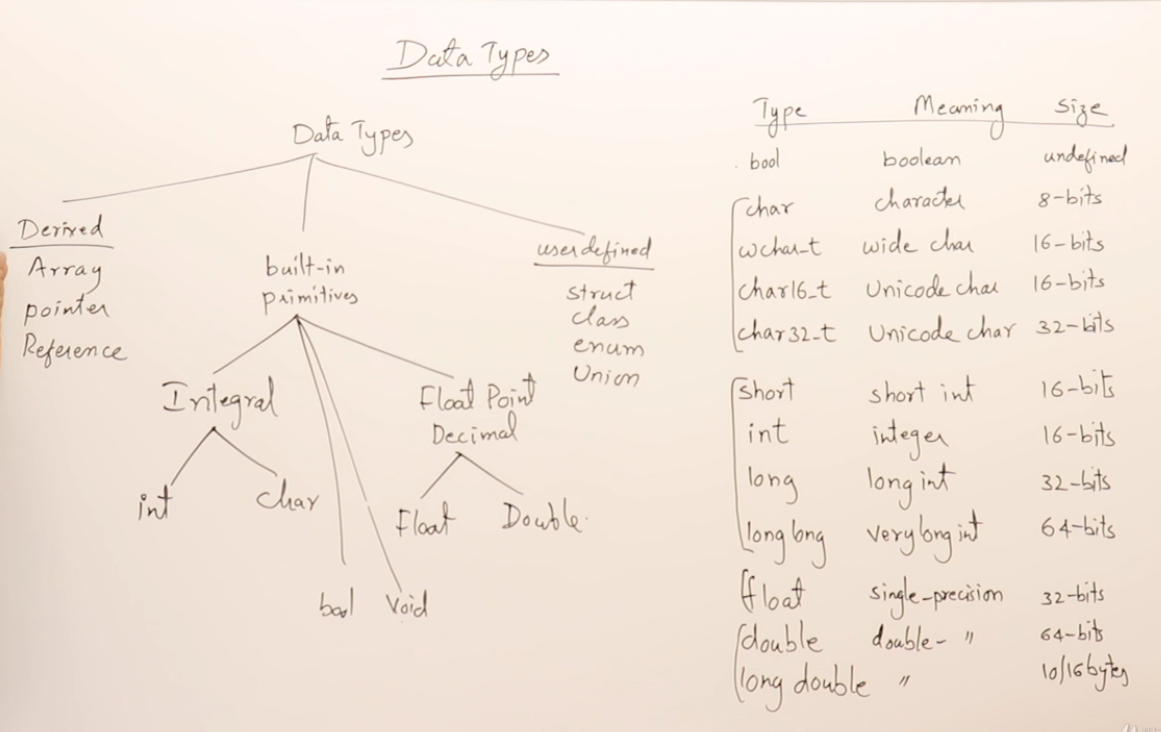 Data Types
Data Types
Derived
Array
pointer
Reference
built-in
primitives
Integral
int
char
Float Point
Decimal
Float
Double
bool
Void
userdefined
struct
class
enum
Union
Type Meaning Size
bool boolean undefined
char character 8-bits
wchar_t wide char 16-bits
char16_t Unicode char 16-bits
char32_t Unicode char 32-bits
short short int 16-bits
int integer 16-bits
long long int 32-bits
long long very long int 64-bits
float single-precision 32-bits
double double- " 64-bits
long double " 10/16bytes